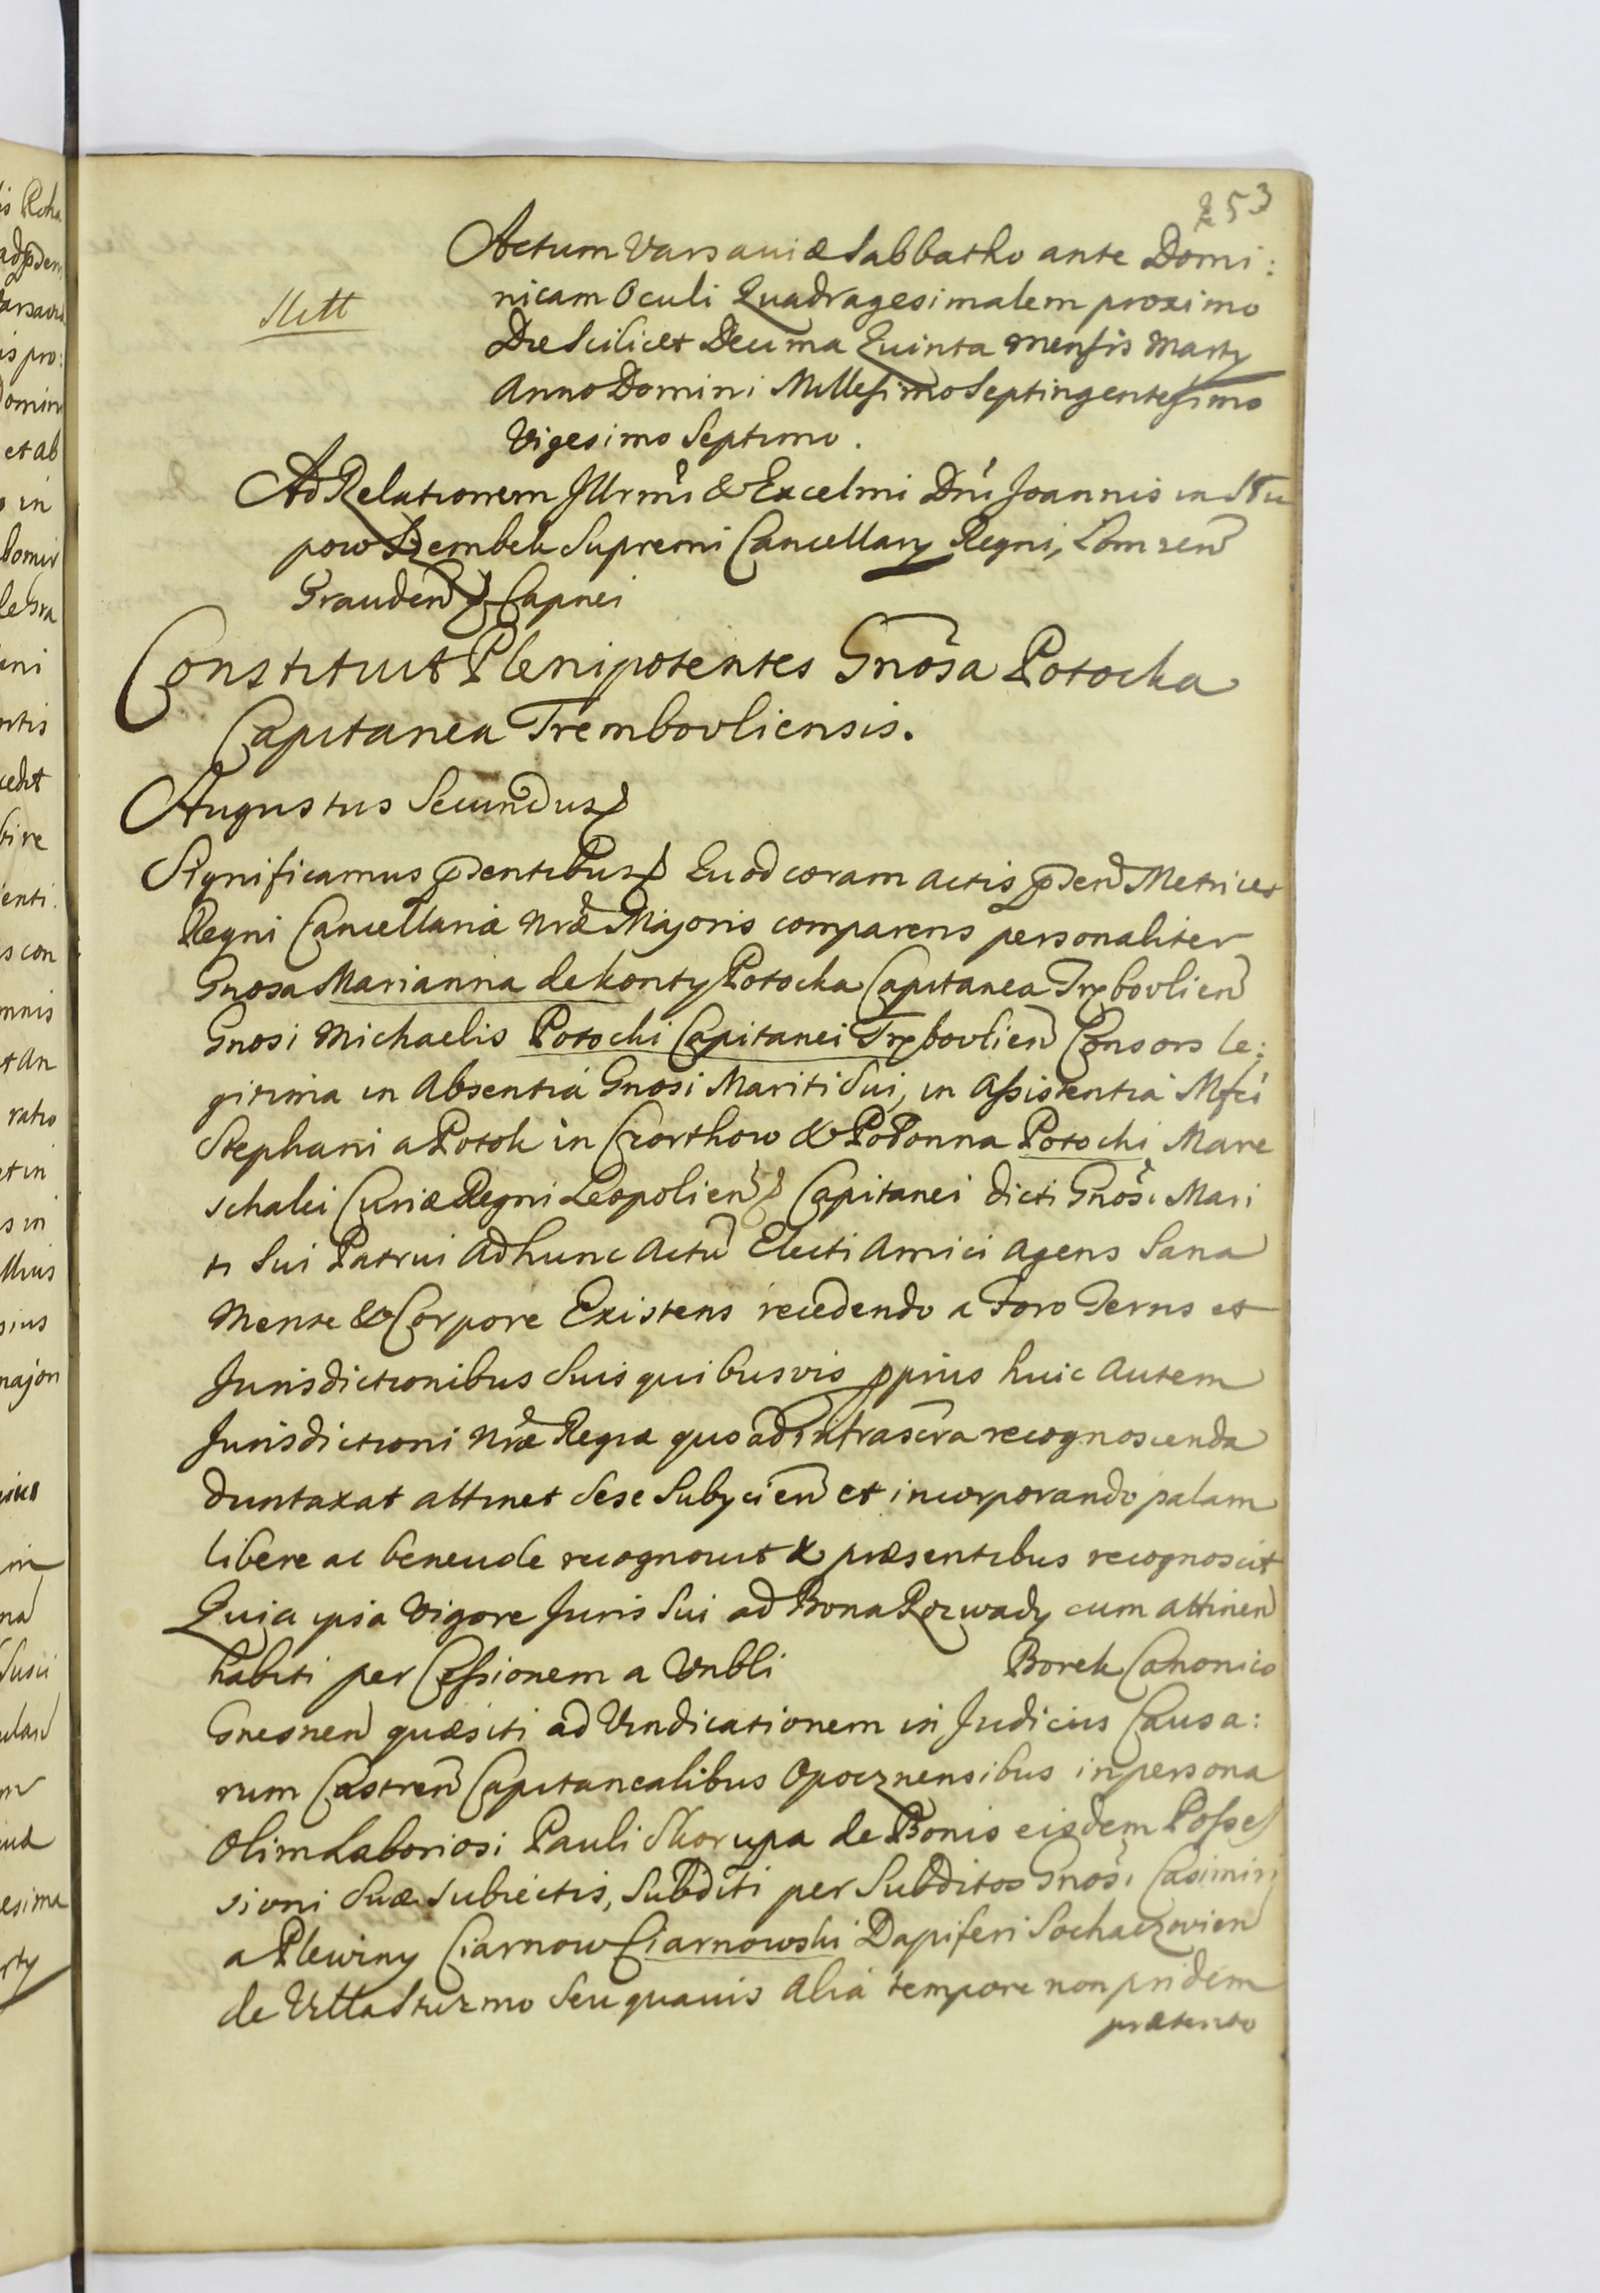 253
Actum Varsaviæ Sabbatho ante Domi:
nicam Oculi Quadragesimalem proximo
Die Scilicet Decima Quinta Mensis Martij
Anno Domini Millesimo Septingentesimo
Vigesimo Septimo.
Ad Relationem Illrmi & Excelmi Dni Joannis in Słu
pow Szembek Supremi Cancellarij Regni, Lomzen
Grauden Capnei
Constituit Plenipotentes Gnosa Potocka
Capitanea Trembovliensis.
Augustus Secundus
Significamus psentibus Quod coram actis psen Metrices
Regni Cancellariæ nræ Majoris comparens personaliter
Gnosa Marianna de Konty Potocka Capitanea Trębovlien
Gnosi Michaelis Potocki Capitanei Trębovlien Consors le:
gitima in Absentia Gnosi Mariti Sui, in Assistentia Mfci
Stephani a Potok in Czorthow & Potocki Mare
schalci Curiæ Regni Leopolien Capitanei dicti Gnosi Mari
ti Sui Patrui ad hunc Actu Electi Amici agens Sana
Mente & Corpore Existens recedendo a Foro Terris et
Jurisdictionibus Suis quibusvis pprius huic autem
Jurisdictioni nræ Regiæ quo ad infrascra recognoscenda
duntaxat attinet Sese Subycien et incorporando palam
libere ac benevole recognovit & præsentibus recognoscit
Quia ipsa Vigore Juris Sui ad Bona Rozwady cum attinen
habiti per Cessionem a Vnbli Borek Canonico
Gnesnen quæsiti ad Vindicationem in Judiciis Causa:
rum Castren Capitanealibus Opocznensibus in persona
Olim Laboriosi Pauli Skorupa de Bonis eisdem Posses
sioni Suæ Subiectis, Subditi per Subditos Gnosi Casimiri
a Plewiny Ciarnow Ciarnowski Dapiferi Sochaczovien
de Villa Seu quavis Alia tempore non pridem
prætento